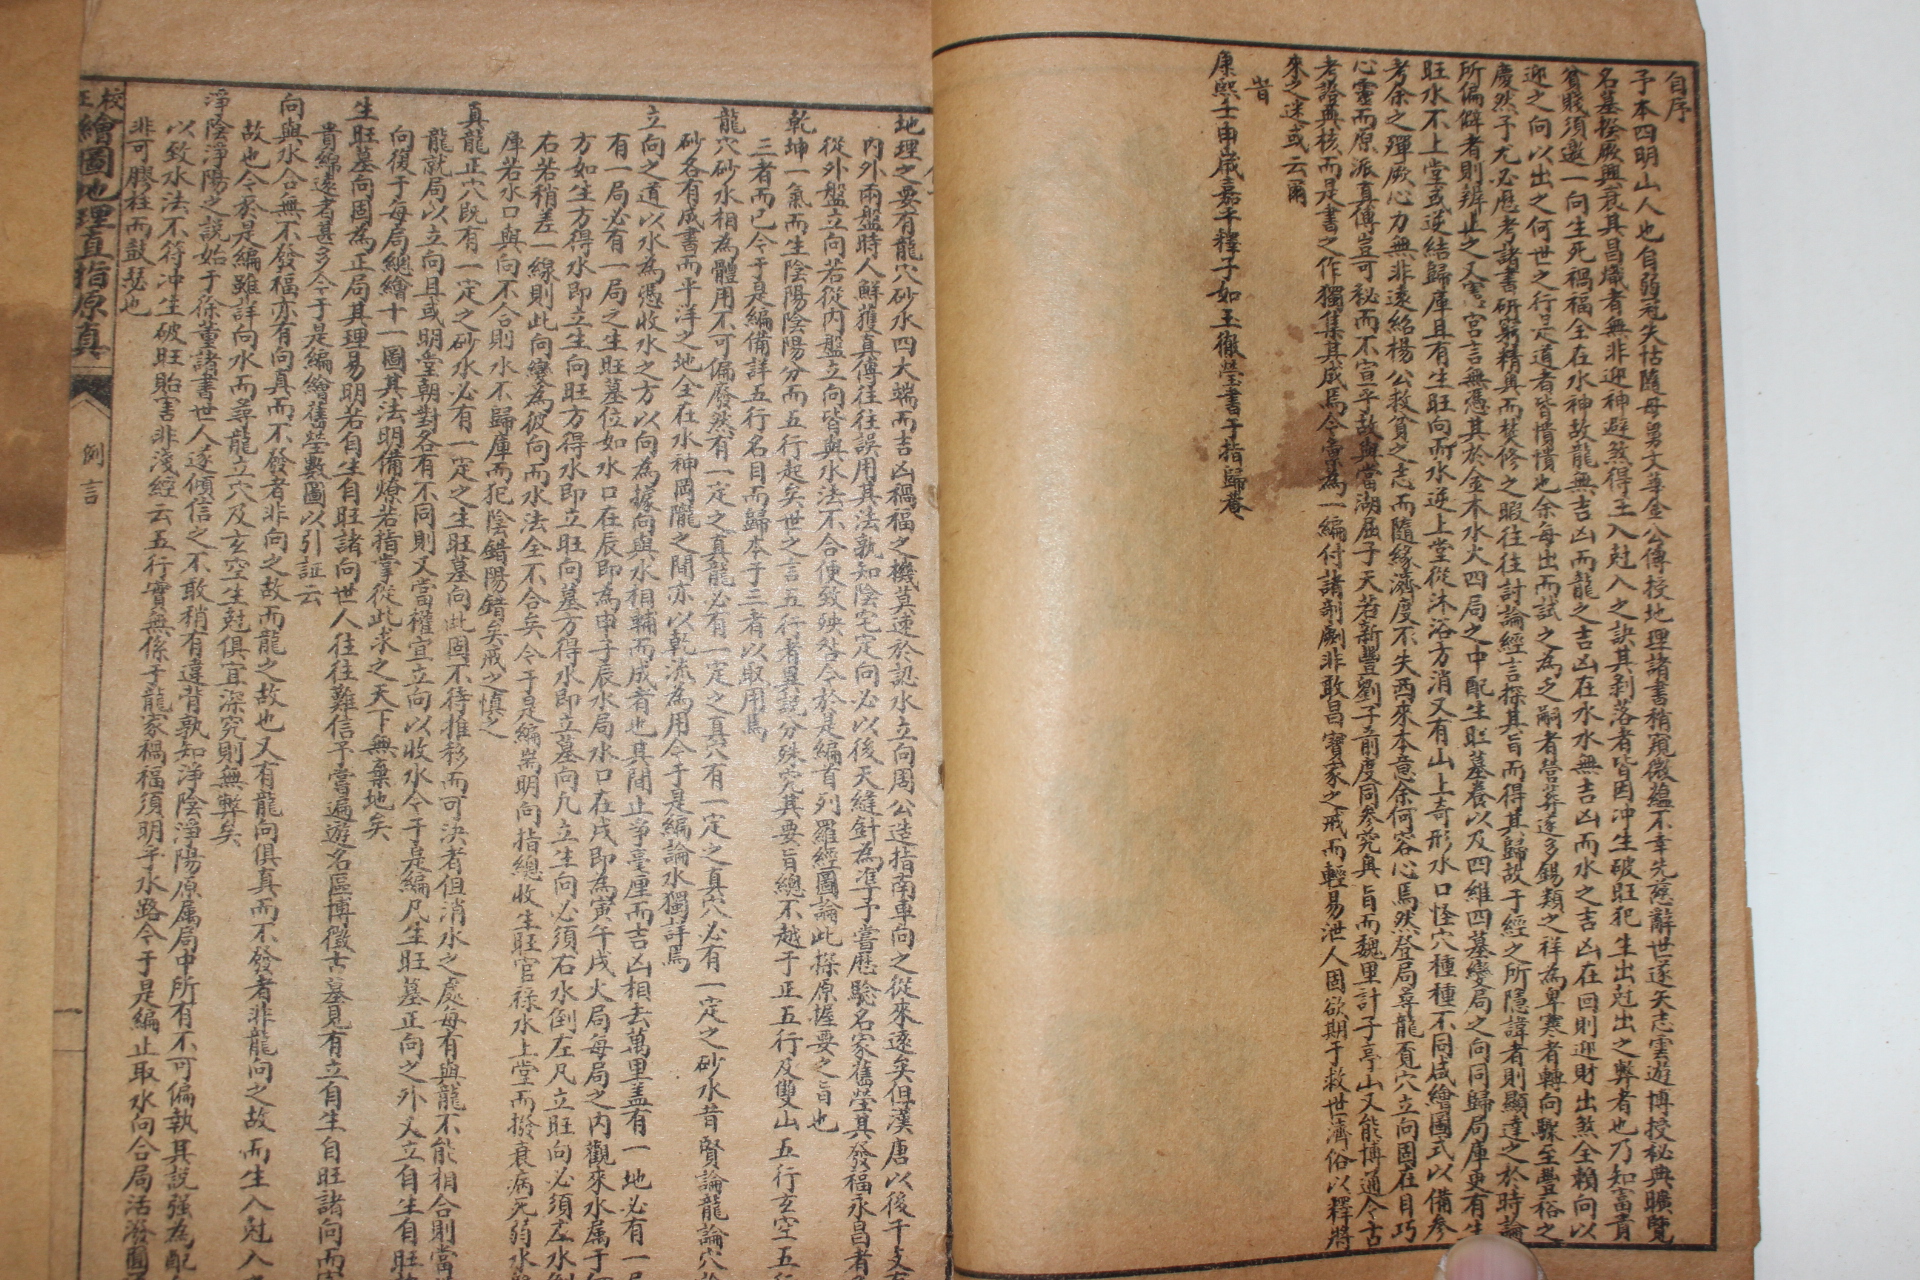 自序
予本四明山人也自弱冠失怙隨母舅文尊金公傳授地理諸書稍窺微蘊不幸先慈辭世遂矢志雲遊博授秘典曠覽
名墓揆厥興衰其昌熾者無非迎神避煞得主入尅入之訣其剥落者皆因冲生破旺犯生出尅出之弊者也乃知富貴
貧賤須邀一向生死禍福全在水神故龍無吉凶而龍之吉凶在水水無吉凶而水之吉凶在回則迎財出煞全賴向以
迎之向以出之何世之行是道者皆憒憒也余每出而試之為乏嗣者營葬遂多錫類之祥為卑寒者轉向驟至豐裕之
慶然予尤必歷考諸書研窮精奥而焚修之暇往往討論經言探其旨而得其歸故于經之所隱諱者則顯達之於時論
所偏僻者則辨止之又
旺水不上堂或逆結歸庫且有生旺向而水逆上堂從沐浴方消又有山上奇形水口怪穴種種不同咸繪圖式以備參
考余之殫厥心力無非遠紹楊公救貧之志而隨緣濟度不失西來本意余何容心焉然登局尋龍覔穴立向固在目巧
心靈而原派真傳豈可秘而不宣乎故與當湖屈子天若新豐劉子前度同參究奥旨而魏里計子亭山又能博通今古
考證典核而是書之作獨集其成焉今彙為一編付諸剞劂非敢昌寶家之戒而輕易泄人固欲期于救世濟俗以釋將
來之迷或云爾
旹
康熙壬申歲嘉平釋子如玉徹瑩書于指歸菴
地理之要有龍穴砂水四大端而吉凶禍福之機莫速於認水立向周公造指南車向之從來遠矣但漢唐以後干支
内外兩盤時人鮮獲真傳往往誤用其法孰知陰宅定向必以後天縫針為准予嘗歷驗名家舊塋其發福永昌者
從外盤立向若從内盤立向皆與水法不合便致殃咎今於是編首列羅經圖論此探原握要之旨也
乾坤一氣而生陰陽陰陽分而五行起矣世之言五行者異説分殊究其要旨總不越于正五行及雙山五行玄空五行
三者而已今于是編備詳五行名目而歸本于三者以取用焉
龍穴砂水相為體用不可偏廢然有一定之真龍必有一定之真穴有一定之真穴必有一定之砂水昔賢論龍論穴
砂名有成書而平洋之地全在水神岡隴之間亦以乾流為用今于是編論水獨詳焉
立向之道以水為憑收水之方以向為據向與水相輔而成者也其間止爭毫厘而吉凶相去萬里盖有一地必有一
有一局必有一局之生旺墓位如水口在辰即為申子辰水局水口在戌即為寅午戌火局每局之内觀來水属于
方如生方得水即立生向旺方得水即立旺向墓方得水即立墓向凡立生向必須右水倒左凡立旺向必須左水倒
右若稍差一線則此向變為彼向而水法全不合矣今于是編耑明向指總收生旺官祿水上堂而撥衰病死弱水
庫若水口與向不合則水不歸庫而犯陰錯陽錯矣戒之慎之
真龍正穴既有一定之砂水必有一定之生旺墓向此固不待推移而可决者但消水之處每有與龍不能相合則當
龍就局以立向且或明堂朝對各有不同則又當權宜立向以收水今于是編凡生旺墓正向之外又立自生自旺
向復于每局總繪十一圖其法明備燎若指掌從此求之天下無棄地矣
生旺墓向固為正局其理易明若自生自旺諸向世人往往難信予嘗遍遊名區博徵古墓見有立自生自旺諸向而
貴綿遠者甚多今于是編繪舊塋數圖以引証云
向與水合無不發福亦有向真而不發者非向之故而龍之故也又有龍向俱真而不發者非龍向之故而生入尅入
故也今於是編雖詳向水而尋龍立穴及玄空生尅俱宜深究則無弊矣
淨陰淨陽之説始于徐董諸書世人遂傾信之不敢稍有違背孰知淨陰淨陽原属局中所有不可偏執其説强為配
以致水法不符冲生破旺貽害非淺經云五行實無係于龍家禍福須明乎水路今于是編止取水向合局活潑圓
非可膠柱而鼓瑟也
校
繪圖地理直指原真
例言